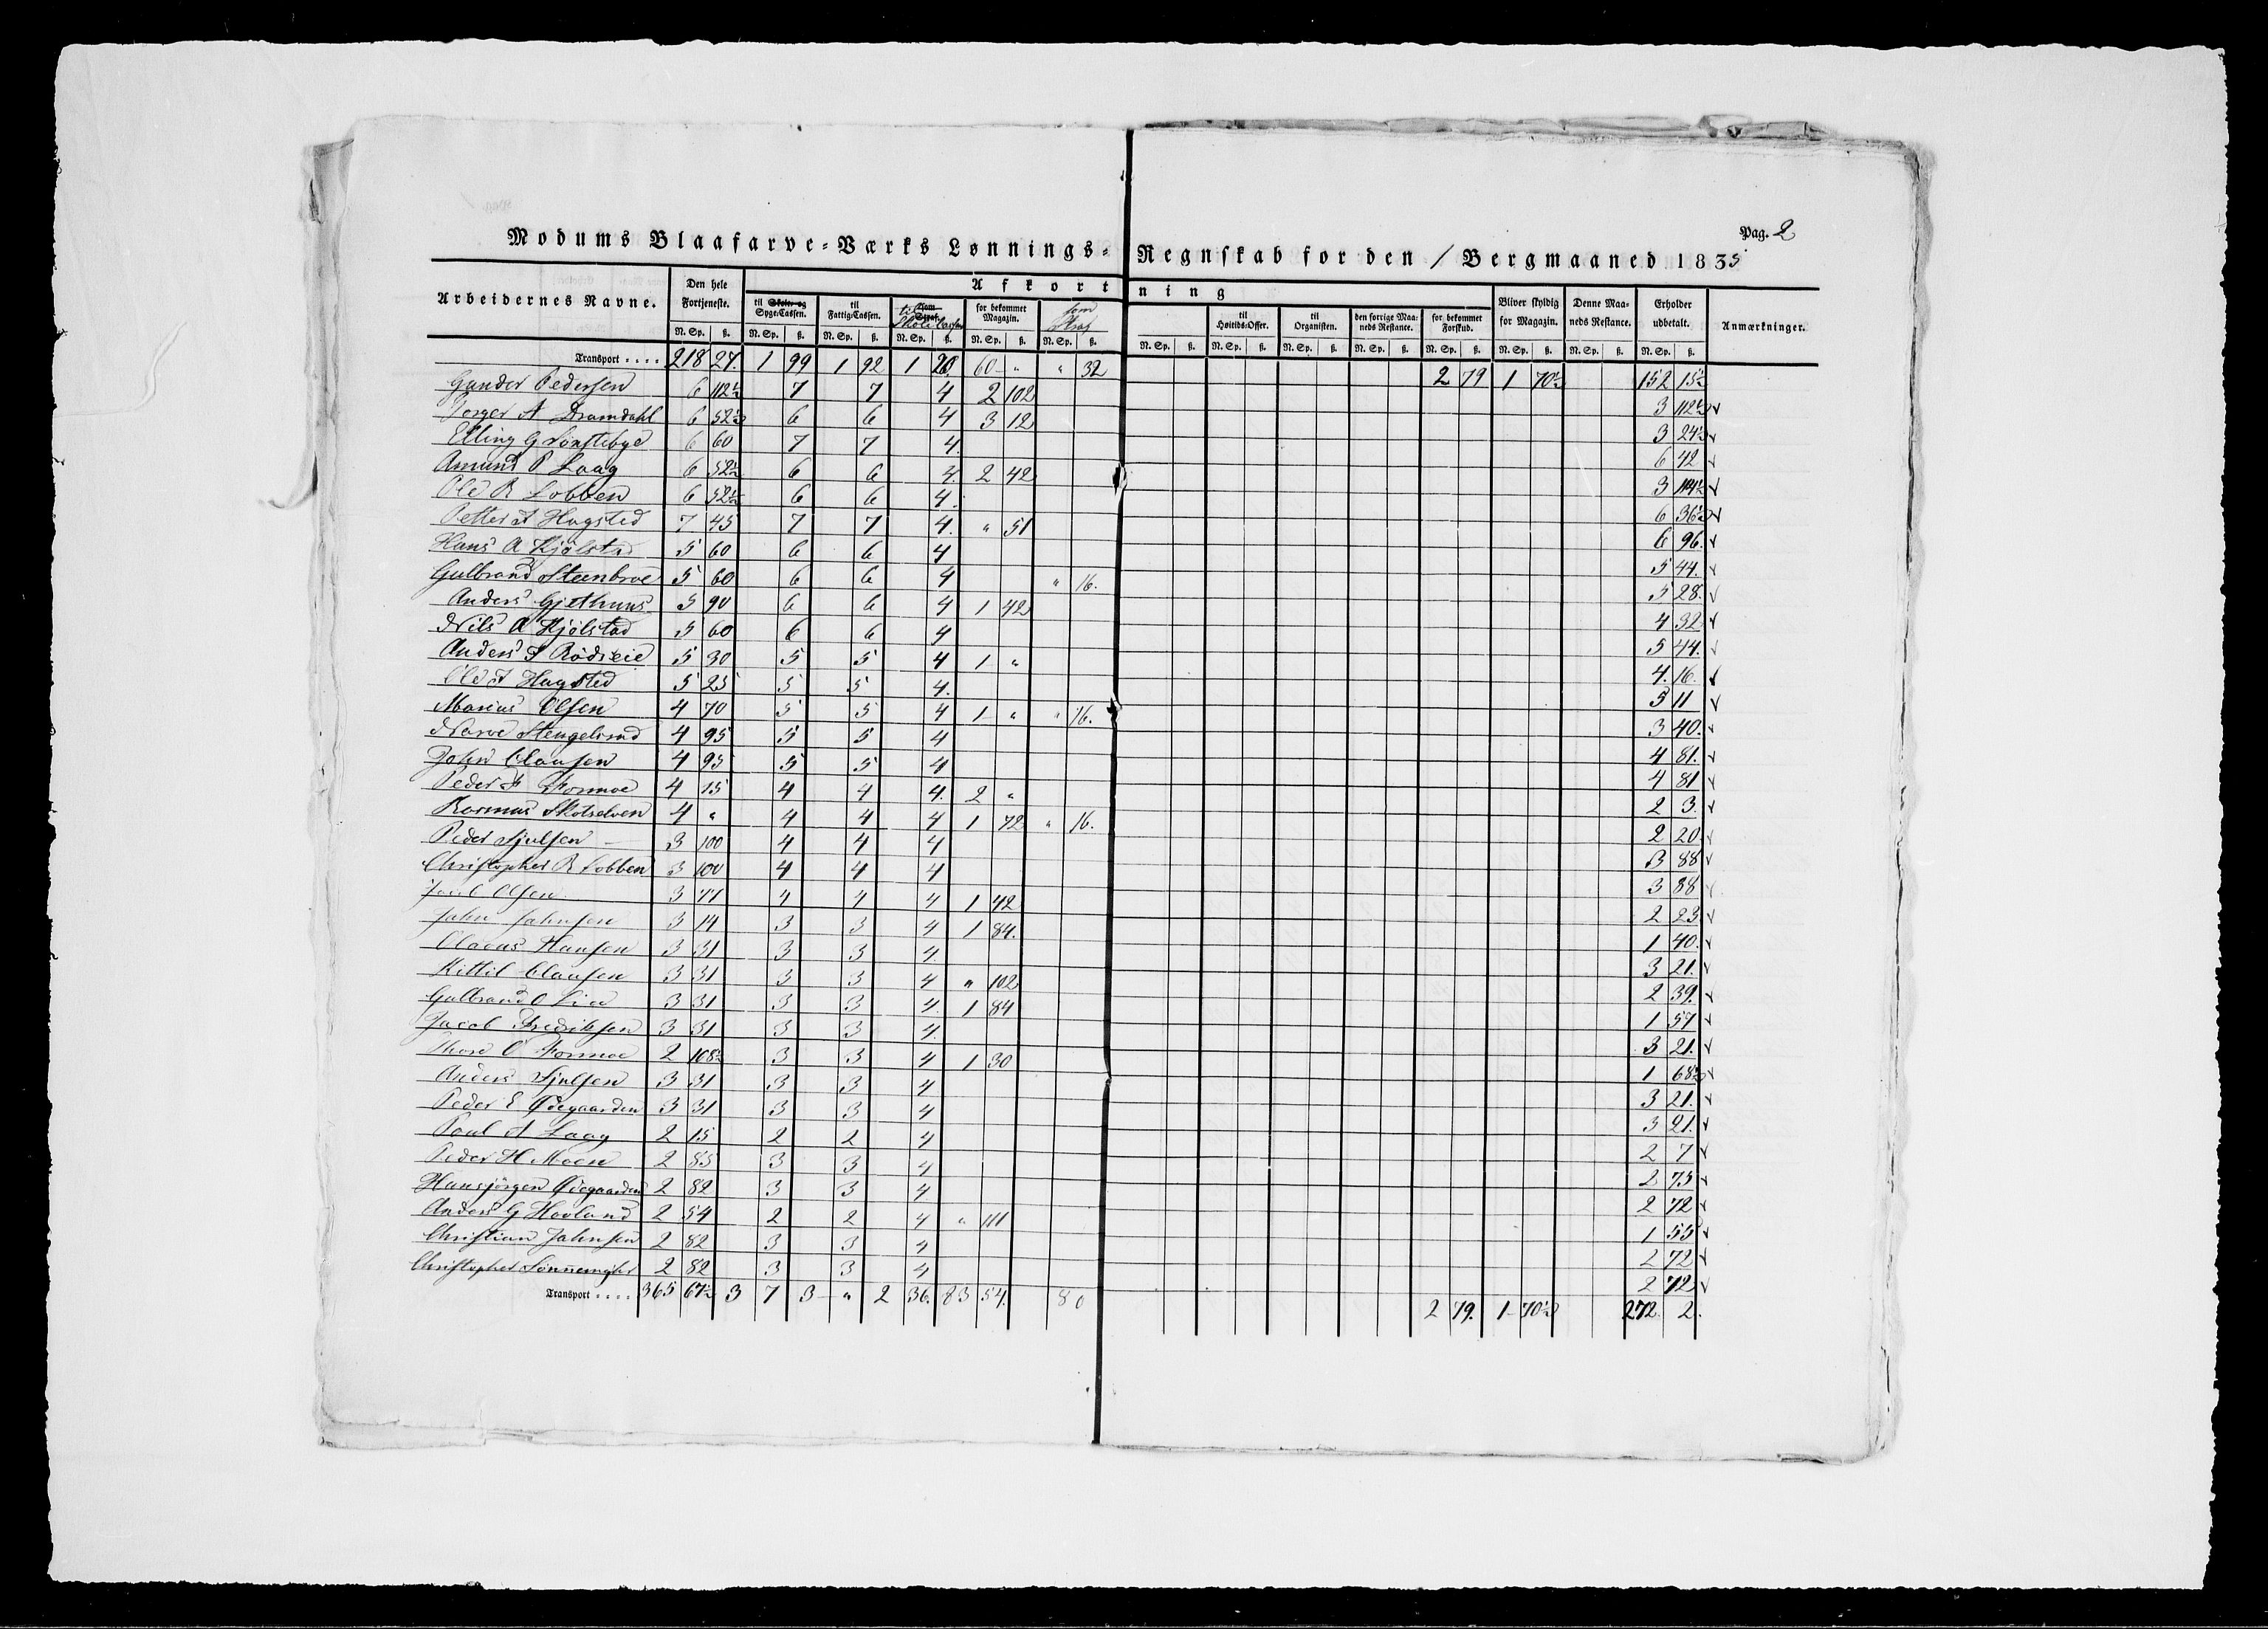 Pag. 2
Modums Blaafarve-Værks Lønnings-Regnskab for den / Bergmaaned 1835
Arbeidernes Navne. | Den hele Fortjeneste. | Afkortning | Bliver skyldig for Magazin. | Denne Maaneds Restance. | Erholder udbetalt. | Anmærkninger.
til Skole- og Syge-Cassen. | til Fattig-Cassen. | til Skole Cassen | for bekommet Magazin. | som Straf | til Høitids-Offer. | til Organisten. | den forrige Maaneds Restance. | for bekommet Forskud.
N. Sp. ß.
Transport .... 218 27. 1 99 1 92 1 20. 60 - " " 32 2 79 1 70½ 152 15½
Gunder Pedersen 6 112½ 7 7 4 2 102 3 112½ v
Torger A Dramdahl 6 52½ 6 6 4 3 12 3 24½ v
Elling G Sønstebye 6 60 7 7 4. 6 42 v
Amund P Laag 6 52½ 6 6 4. 2 42 3 114½ v
Ole R Lobben 6 52½ 6 6 4. 6 36½ v
Petter A Hagsted 7 45 7 7 4. " 51 6 96. v
Hans A Kjølstad 5 60 6 6 4 5 44. v
Gulbrand Steenbroe 5 60 6 6 4 " 16. 5 28. v
Anders Gjethuus 5 90 6 6 4 1 42 4 32 v
Nils A Kjølstad 5 60 6 6 4 5 44. v
Anders S Rødseie 5 30 5 5 4 1 " 4. 16. v
Ole A Hagsted 5 25 5 5 4. 5 11 v
Marius Olsen 4 70 5 5 4 1 - " " 16. 3 40. v
Narve Stengelsrud 4 95 5 5 4 4 81. v
John Clausen 4 95 5 5 4 4 81 v
Peder A Formoe 4 15 4 4 4. 2 " 2 3. v
Rasmus Skotselven 4 " 4 4 4 1 72 " 16. 2 20 v
Peder Sjulsen 3 100 4 4 4 3 88 v
Christopher R Lobben 3 100 4 4 4 3 88 v
Jacob Olsen 3 77 4 4 4 1 42 2 23 v
Jahn Jahnsen 3 14 3 3 4 1 84. 1 40. v
Claeus Hansen 3 31 3 3 4. 3 21. v
Kittil Clausen 3 31 3 3 4 " 102 2 39. v
Gulbrand O Lie 3 31 3 3 4. 1 84 1 57 v
Jacob Fredriksen 3 31 3 3 4. 3 21. v
Thore O Formoe 2 108½ 3 3 4 1 30 1 68½ v
Anders Sjulsen 3 31 3 3 4 3 21. v
Peder E Ødegaarden 3 31 3 3 4 3 21. v
Poul A Laag 2 15 2 2 4 2 7 v
Peder H Moen 2 85 3 3 4 2 75 v
Hansjørgen Ødegaarden 2 82 3 3 4 2 72 v
Anders G Hovland 2 54 2 2 4 " 111 1 55 v
Christian Jahnsen 2 82 3 3 4 2 72 v
Christopher Sønnemyhr 2 82 3 3 4 2 72 v
Transport .... 365 67½ 3 7 3 - " 2 36. 83 54. 80 2 79. 1 - 70½ 272. 2.